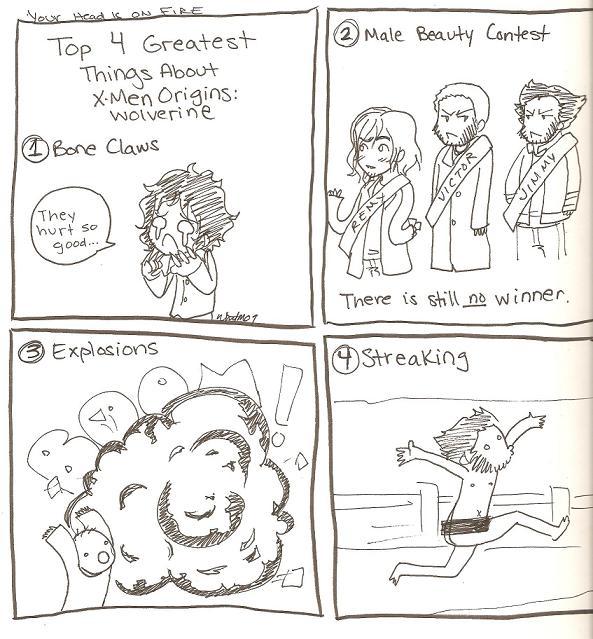 Your Head is on FIRE
Top 4 Greatest
Things About
X-Men Origins:
Wolverine
1 Bone Claws
They
hurt so
good...
2 Male Beauty Contest
REMY
VICTOR
JIMMY
There is still no winner.
3 Explosions
!
4 Streaking